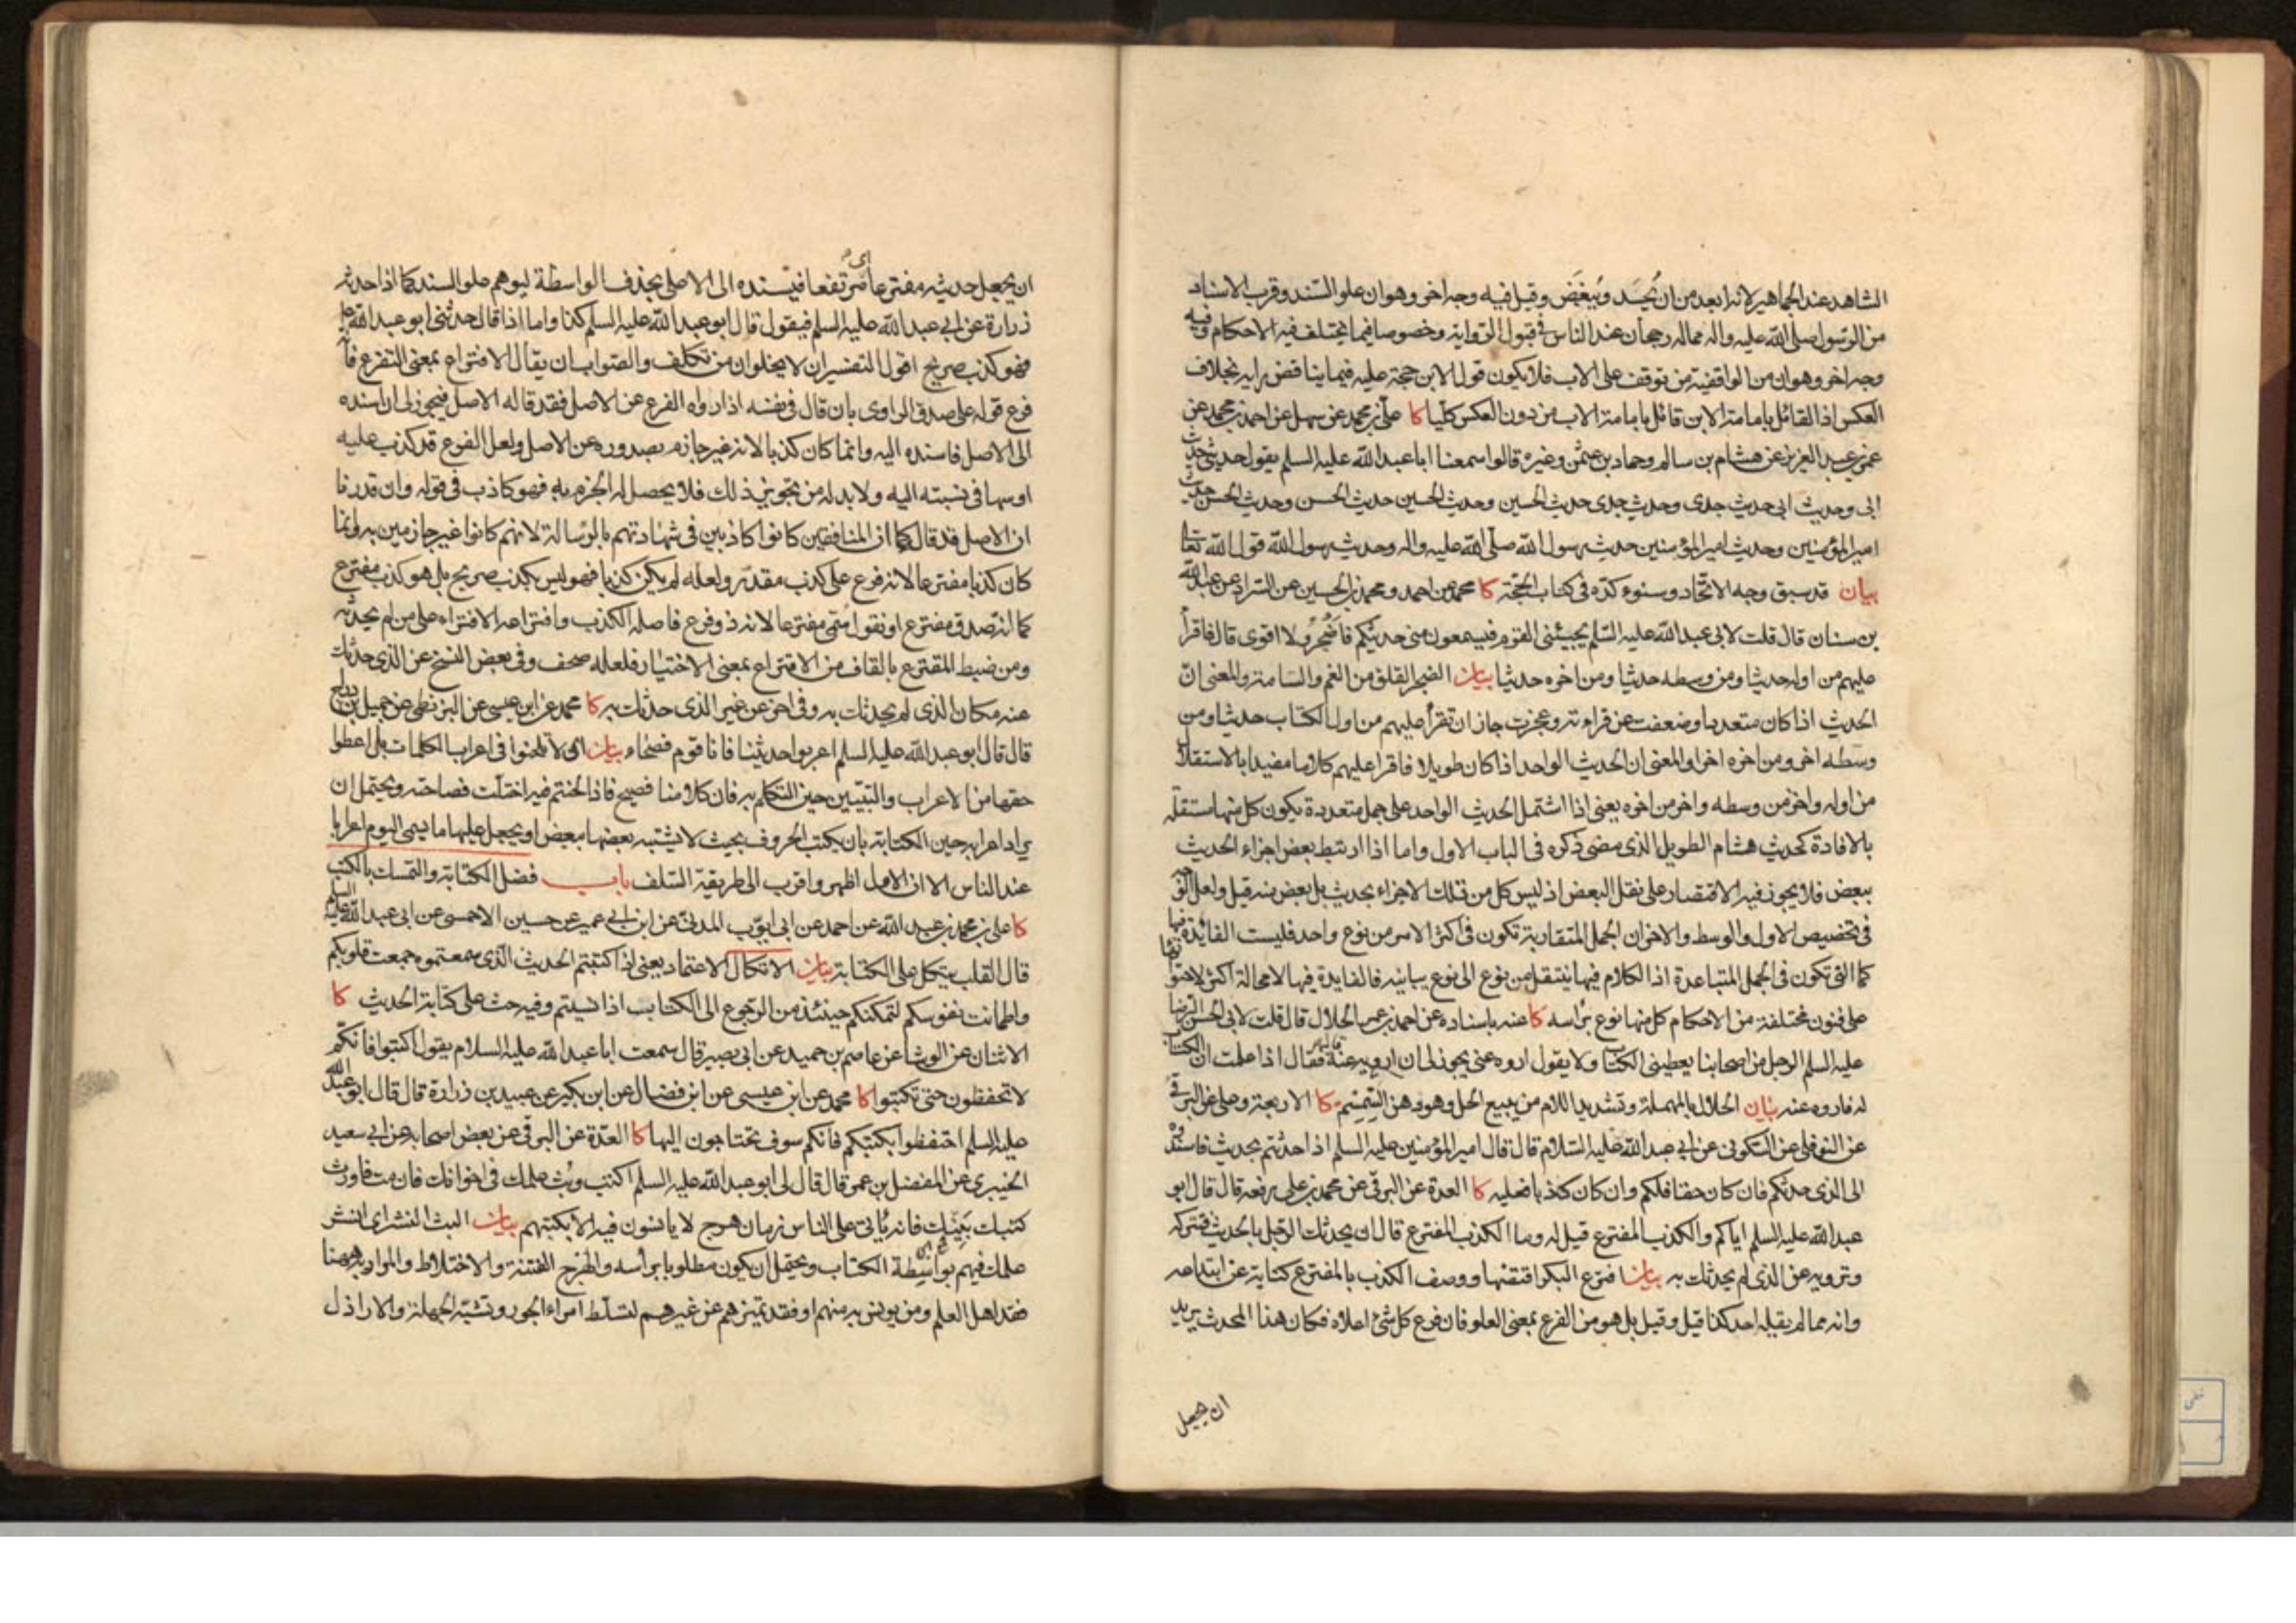 الشاهد عند الجماهير لانه ابعد من ان يُحسَد ويُبغَض وقيل فيه وجه اخر وهو ان علو السند وقرب الاسناد
من الرسول صلى الله عليه واله مما له رجحان عند الناس فى قبول الرواية وخصوصا فيما يختلف فيه الاحكام وفيه
وجه اخر وهو ان من الواقفية من توقف على الاب فلا يكون قول الابن حجة عليه فيما يناقض رايه بخلاف
العكس اذ القائل بامامة الابن قائل بامامة الاب من دون العكس كليا كا على بن محمد عن سهل عن احمد بن محمد عن
عمر بن عبد العزيز عن هشام بن سالم وحماد بن عثمن وغيره قالوا سمعنا ابا عبد الله عليه السلم يقول حديثى حديث
ابى وحديث ابى حديث جدى وحديث جدى حديث الحسين وحديث الحسين حديث الحسن وحديث الحسن حديث
امير المؤمنين وحديث امير المؤمنين حديث رسول الله صلى الله عليه واله وحديث رسول الله قول الله تعالى
بيان قد سبق وجه الاتحاد وسنوء كده فى كتاب الحجة كا محمد عن احمد ومحمد بن الحسين عن السراد عن عبد الله
بن سنان قال قلت لابى عبد الله عليه السلم يجيئنى القوم فيسمعون منى حديثكم فاضجر ولا اقوى قال فاقرأ
عليهم من اوله حديثا ومن وسطه حديثا ومن اخره حديثا بيان الضجر القلق من الغم والسامة والمعنى ان
الحديث اذا كان متعددا وضعفت عن قراءته وعجزت جاز ان تقرأ عليهم من اول الكتاب حديثا ومن
وسطه اخر ومن اخره اخر او المعنى ان الحديث الواحد اذا كان طويلا فاقرا عليهم كلاما مفيدا بالاستقلال
من اوله واخر من وسطه واخر من اخره يعنى اذا اشتمل الحديث الواحد على جمل متعددة يكون كل منها مستقلة
بالافادة كحديث هشام الطويل الذى مضى ذكره فى الباب الاول واما اذا ارتبط بعض اجزاء الحديث
ببعض فلا يجوز فيه الاقتصار على نقل البعض اذ ليس كل من تلك الاجزاء بحديث بل بعض منه قيل ولعل الوجه
فى تخصيص الاول والوسط والاخر ان الجمل المتقاربة تكون فى اكثر الامر من نوع واحد فليست الفائدة فيها
كما التى تكون فى الجمل المتباعدة اذ الكلام فيها ينتقل من نوع الى نوع يباينه فالفايدة فيها لا محالة اكثر لاحتوائها
على فنون مختلفة من الاحكام كل منها نوع برأسه كا عنه باسناده عن احمد بن عمر الحلال قال قلت لابى الحسن الرضا
عليه السلم الرجل من اصحابنا يعطينى الكتاب ولا يقول اروه عنى يجوز لى ان ارويه عنه قال فقال اذا علمت ان الكتاب
له فاروه عنه بيان الحلال بالمهملة وتشديد اللام من يبيع الحل وهو دهن السمسم كا الاربعة وعلى عن البرقى
عن النوفلى عن السكونى عن ابى عبد الله عليه السلام قال قال امير المؤمنين عليه السلم اذا حدثتم بحديث فاسندوه
الى الذى حدثكم فان كان حقا فلكم وان كان كذبا فعليه كا العدة عن البرقى عن محمد بن على رفعه قال قال ابو
عبد الله عليه السلم اياكم والكذب المفترع قيل له وما الكذب المفترع قال ان يحدثك الرجل بالحديث فتتركه
وترويه عن الذى لم يحدثك به بيان افترع البكر افتضها ووصف الكذب بالمفترع كناية عن ابتداعه
وانه مما لم يقبله احد كذا قيل وقيل بل هو من الفرع بمعنى العلو فان فرع كل شئ اعلاه فكان هذا المحدث يريد
ان يجعل
ان يجعل حديثه مفترعا اى مرتفعا فيسنده الى الاصل بحذف الواسطة ليوهم علو السند كما اذا حدثه
زرارة عن ابى عبد الله عليه السلم فيقول قال ابو عبد الله عليه السلم كذا واما اذا قال حدثنى ابو عبد الله
فهو كذب صريح اقول التفسيران لا يخلوان من تكلف والصواب ان يقال الافتراع بمعنى التفرع فانه
فرع قوله على صدق الراوى بان قال فى نفسه اذا رواه الفرع عن الاصل فقد قاله الاصل فيجوز لى ان اسنده
الى الاصل فاسنده اليه وانما كان كذبا لانه غير جازم بصدوره عن الاصل ولعل الفرع قد كذب عليه
او سها فى نسبته اليه ولا بد له من تجويز ذلك فلا يحصل له الجزم به فهو كاذب فى قوله وان قدرنا
ان الاصل قد قال كما ان المنافقين كانوا كاذبين فى شهادتهم بالرسالة لانهم كانوا غير جازمين به وانما
كان كذبا مفترعا لانه فرع على كذب مقدر ولعله لم يكن كذبا فهو ليس بكذب صريح بل هو كذب مفترع
كما انه صدق مفترع او نقول سمى مفترعا لانه ذو فرع فاصله الكذب وافتراعه الافتراء على من لم يحدثه
ومن ضبط المقترع بالقاف من الاقتراع بمعنى الاختيار فلعله صحف وفى بعض النسخ عن الذى حدثك
عنه مكان الذى لم يحدثك به وفى اخر عن غير الذى حدثك به كا محمد عن ابن عيسى عن البزنطى عن جميل بن دراج
قال قال ابو عبد الله عليه السلم اعربوا حديثنا فانا قوم فصحاء بيان اى لا تلحنوا فى اعراب الكلمات بل اعطوا
حقها من الاعراب والتبيين حين التكلم به فان كلامنا فصيح فاذا لحنتم فيه اختلت فصاحته ويحتمل ان
يراد اعرابه حين الكتابة بان يكتب الحروف بحيث لا يشتبه بعضها ببعض او يجعل عليها ما يسمى اليوم اعرابا
عند الناس الا ان الاول اظهر واقرب الى طريقة السلف باب فضل الكتابة والتمسك بالكتب
كا على بن محمد بن عبد الله عن احمد عن ابى ايوب المدنى عن ابن ابى عمير عن حسين الاحمسى عن ابى عبد الله عليه السلم
قال القلب يتكل على الكتابة بيان الاتكال الاعتماد يعنى اذا كتبتم الحديث الذى سمعتموه جمعت قلوبكم
واطمانت نفوسكم لتمكنكم حينئذ من الرجوع الى الكتاب اذا نسيتم وفيه حث على كتابة الحديث كا
الاثنان عن الوشا عن عاصم بن حميد عن ابى بصير قال سمعت ابا عبد الله عليه السلام يقول اكتبوا فانكم
لا تحفظون حتى تكتبوا كا محمد عن ابن عيسى عن ابن فضال عن ابن بكير عن عبيد بن زرارة قال قال ابو عبد الله
عليه السلم احتفظوا بكتبكم فانكم سوف تحتاجون اليها كا العدة عن البرقى عن بعض اصحابه عن ابى سعيد
الخيبرى عن المفضل بن عمر قال قال لى ابو عبد الله عليه السلم اكتب وبث علمك فى اخوانك فان مت فاورث
كتبك بنيك فانه ياتى على الناس زمان هرج لا يانسون فيه الا بكتبهم بيان البث النشر اى انشر
علمك فيهم بواسطة الكتاب ويحتمل ان يكون مطلوبا براسه والهرج الفتنة والاختلاط والمراد به ههنا
فقد اهل العلم ومن يونس به منهم او فقد تميزهم عن غيرهم لتسلط امراء الجور وتشبه الجهلة والاراذل